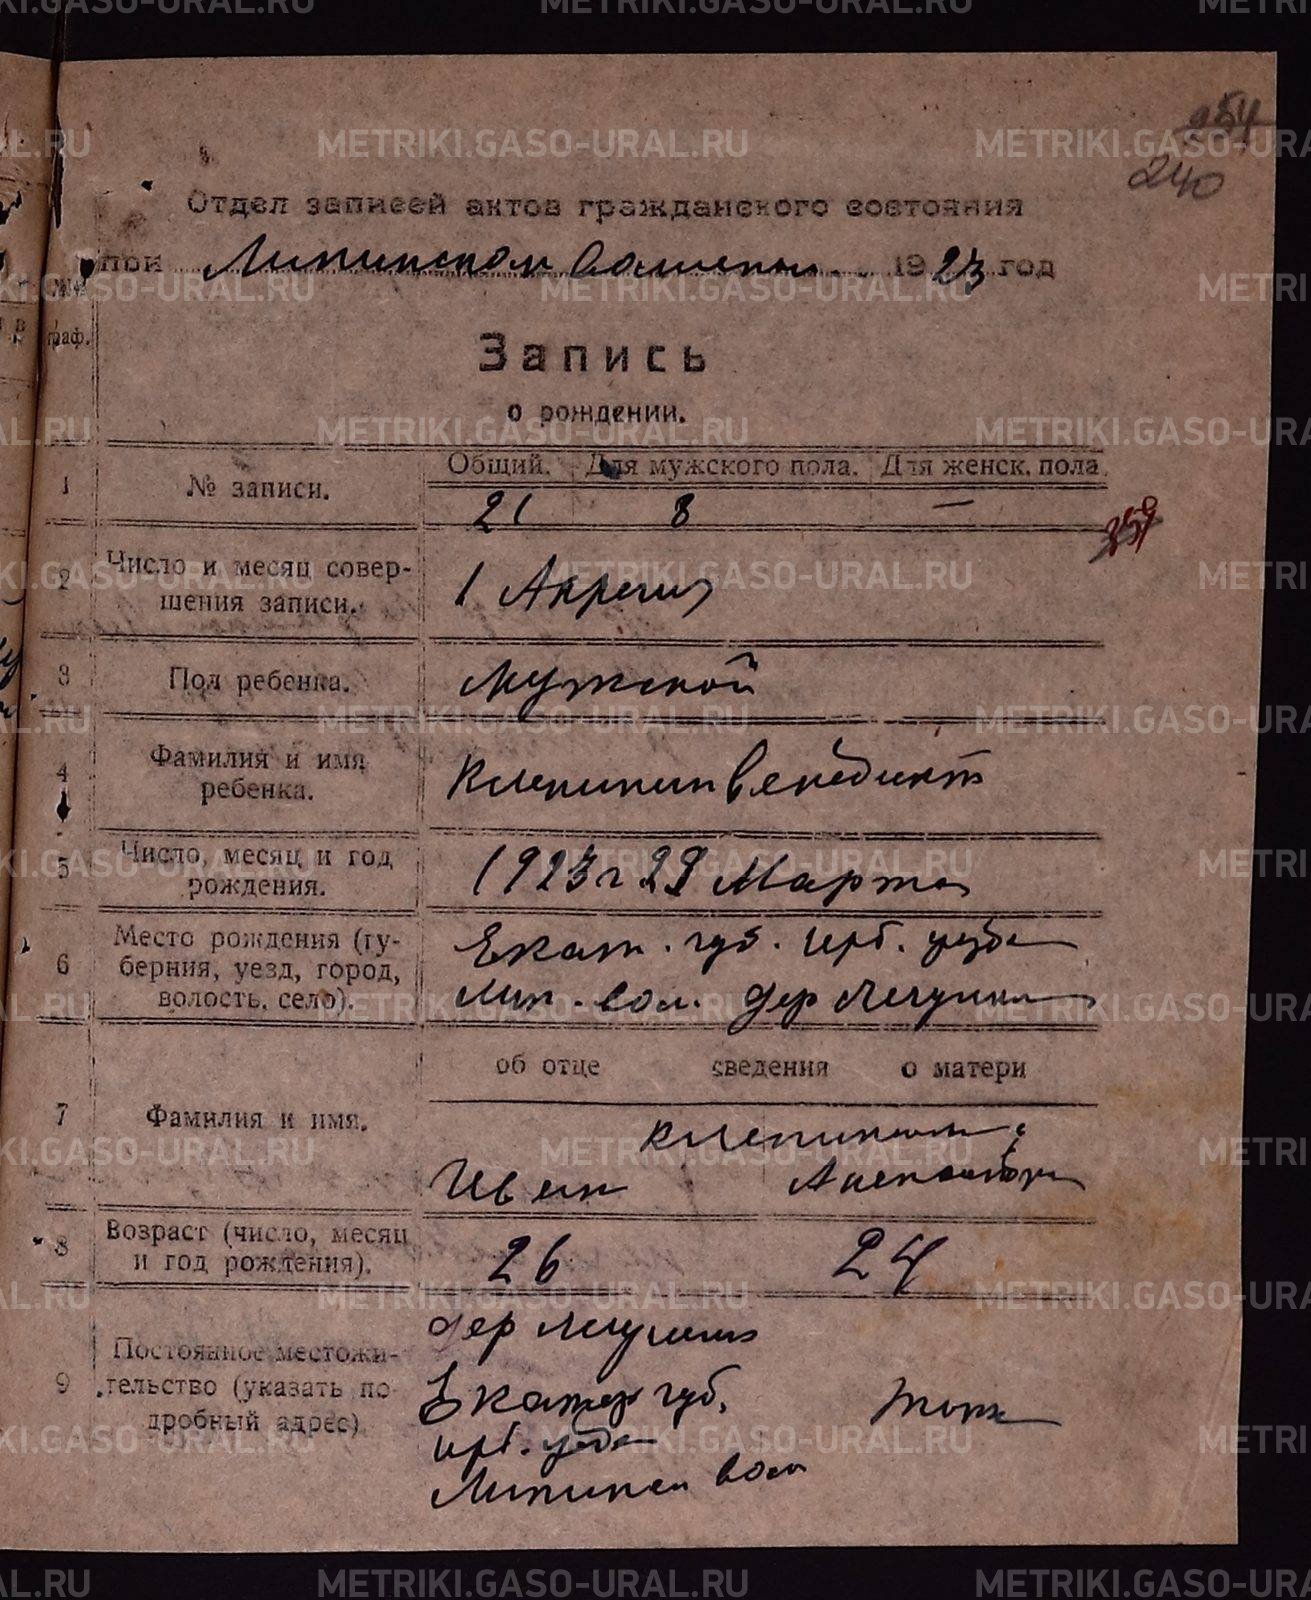 254
240
Отдел записей актов гражданского состояния
при Липинском 1923 год
№№ граф.
Запись
о рождении.
Общий. Для мужского пола. Для женск. пола.
1 № записи. 21 8 —
259
2 Число и месяц совер-
шения записи. 1 Апреля
3 Пол ребенка. Мужской
4 Фамилия и имя
ребенка. Клепинин Венедикт
5 Число, месяц и год
рождения. 1923 г 29 Марта
6 Место рождения (гу-
берния, уезд, город,
волость, село).
Екат. губ. Ирб. уезда
Лип. вол. дер
об отце сведения о матери
7 Фамилия и имя.
Клепинины
Иван Александра
8 Возраст (число, месяц
и год рождения). 26 24
9 Постоянное местожи-
тельство (указать по-
дробный адрес)
дер
Екатер губ.
Ирб. уезда
Липинск вол
METRIKI.GASO-URAL.RU